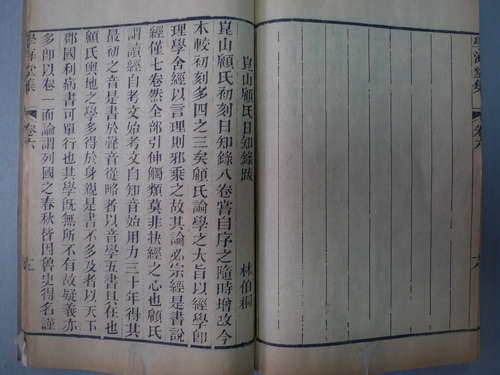 學海堂集
卷六
十八
崑山顧氏日知錄跋
林伯桐
崑山顧氏初刻日知錄八卷嘗自序之隨時增故今
本較初刻多四之三矣顧氏論學之大旨以經學卽
理學舍經以言理則邪乘之故其論必宗經是書說
經僅七卷然全部引伸觸類莫非抉經之心也顧氏
謂讀經自考文始考文自知音始用力三十年得其
最初之音是書於聲音從略者以音學五書具在也
顧氏輿地之學多得於身親是書不多及者以天下
郡國利病書可單行也其學旣無所不有故疑義亦
多卽以卷一而論謂列國之春秋皆因魯史得名謹
學海堂集
卷六
十九